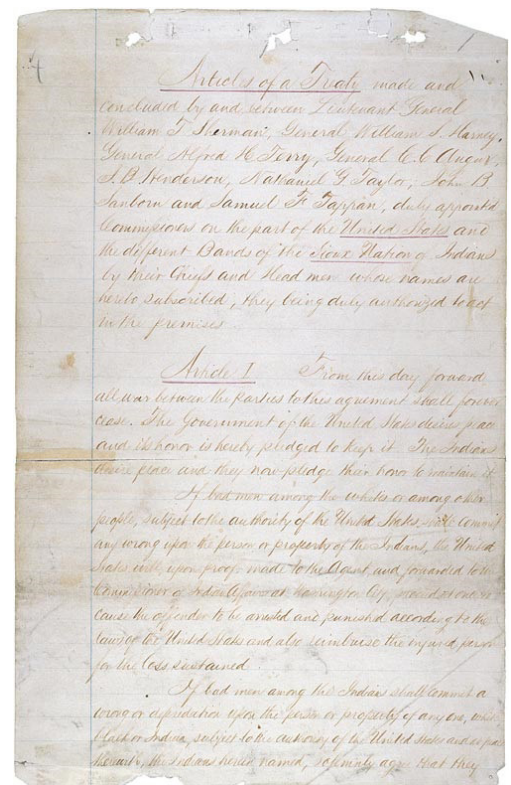 4
Articles of a Treaty made and
concluded by and between Lieutenant General
William T. Sherman, General William S. Harney,
General Alfred H. Terry, General C. C. Augur,
J. B. Henderson, Nathaniel G. Taylor, John B
Sanborn and Samuel F. Tappan, duly appointed
Commissioners on the part of the United States and
the different Bands of the Sioux Nation of Indians
by their Chiefs and Head men whose names are
hereto subscribed, they being duly authorized to act
in the premises
Article I From this day forward
all war between the parties to this agreement shall forever
cease. The Government of the United States desires peace
and its honor is hereby pledged to keep it. The Indians
desire peace and they now pledge their honor to maintain it
If bad men among the whites or among other
people, subject to the authority of the United States, shall commit
any wrong upon the person or property of the Indians, the United
States will, upon proof made to the Agent and forwarded to the
Commissioner of Indian Affairs at Washington City, proceed at once to
cause the offender to be arrested and punished according to the
laws of the United States and also reimburse the injured person
for the loss sustained.
If bad men among the Indians shall commit a
wrong or depredation upon the person or property of any one, white
black or Indian, subject to the authority of the United States and at peace
therewith, the Indians herein named, solemnly agree that they